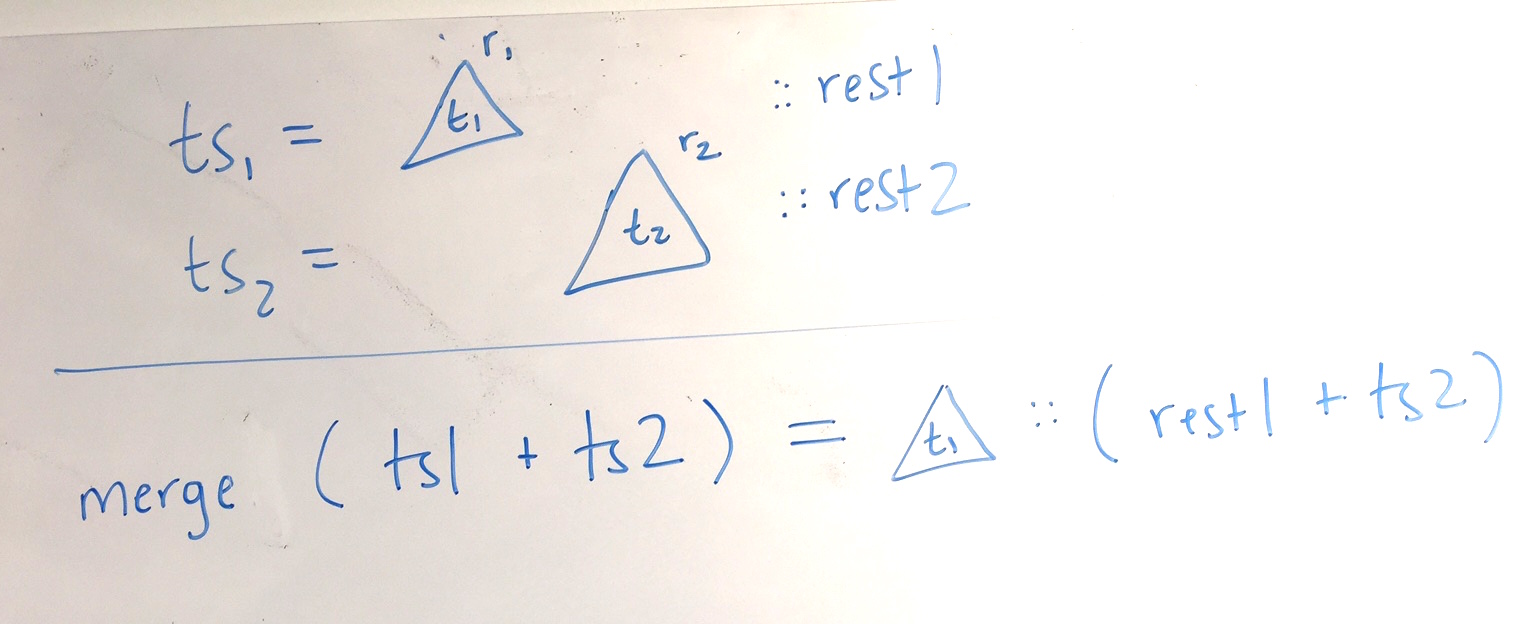 ts₁ = t₁ r₁ :: rest1
ts₂ = t₂ r₂ :: rest2
merge ( ts1 + ts2 ) = t₁ :: ( rest1 + ts2 )